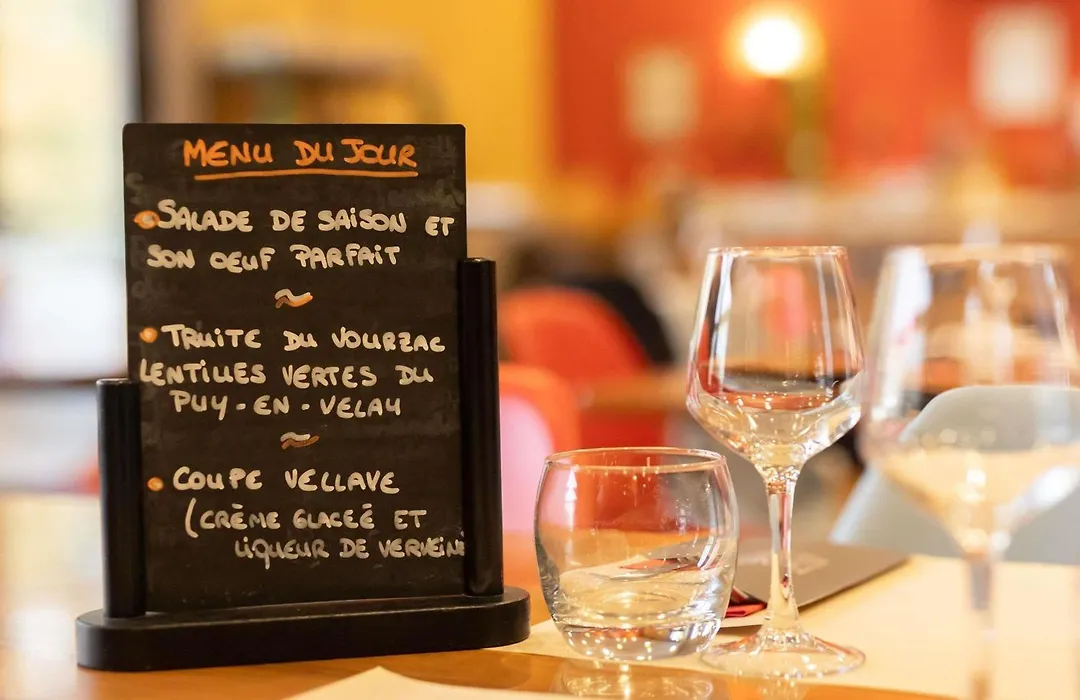 MENU DU JOUR
SALADE DE SAISON ET
SON OEUF PARFAIT
~
TRUITE DU VOURZAC
LENTILLES VERTES DU
PUY-EN-VELAY
~
COUPE VELLAVE
(CRÈME GLACÉÉ ET
LIQUEUR DE VERVEINE